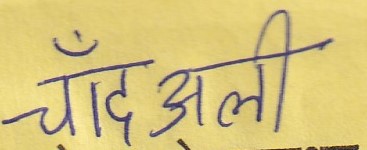 चाँद अली